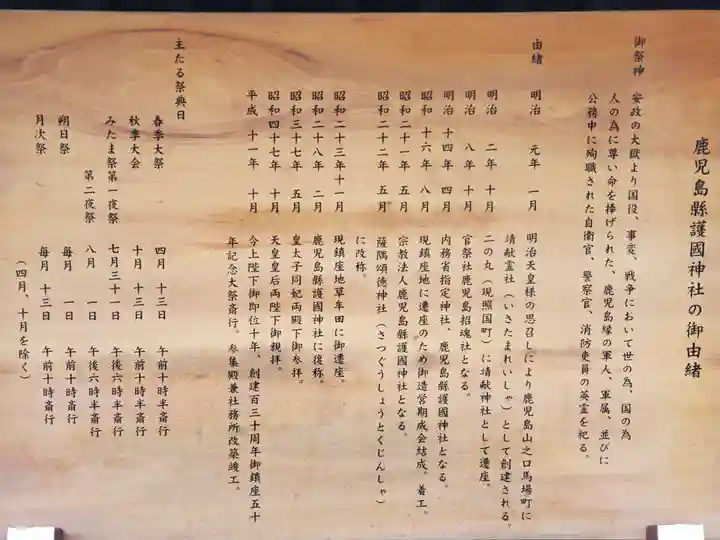 鹿児島縣護國神社の御由緒
御祭神 安政の大獄より国役、事変、戦争において世の為、国の為
人の為に尊い命を捧げられた、鹿児島縁の軍人、軍属、並びに
公務中に殉職された自衛官、警察官、消防吏員の英霊を祀る。
由緒 明治 元年 一月 明治天皇様の思召しにより鹿児島山之口馬場町に
靖献霊社(いさたまれいしゃ)として創建される。
明治 二年 十月 二の丸(現照国町)に靖献神社として遷座。
明治 八年 十月 官祭社鹿児島招魂社となる。
明治 十四年 四月 内務省指定神社、鹿児島縣護國神社となる。
昭和 十六年 八月 現鎮座地に遷座のため御造営期成会結成。着工。
昭和二十一年 五月 宗教法人鹿児島縣護國神社となる。
昭和二十二年 五月 薩隅頌徳神社(さつぐうしょうとくじんしゃ)
に改称。
昭和二十三年十一月 現鎮座地草牟田に御遷座。
昭和二十八年 二月 鹿児島縣護國神社に復称。
昭和三十七年 五月 皇太子同妃両殿下御参拝。
昭和四十七年 十月 天皇皇后両陛下御親拝。
平成 十一年 十月 今上陛下御即位十年、創建百三十周年御鎮座五十
年記念大祭斎行。参集殿兼社務所改築竣工。
主たる祭典日
春季大祭 四月 十三日 午前十時斎行
秋季大会 十月 十三日 午前十時斎行
みたま祭第一夜祭 七月三十一日 午後六時半斎行
第二夜祭 八月 一日 午後六時半斎行
朔日祭 毎月 一日 午前十時斎行
月次祭 毎月 十三日 午前十時斎行
(四月、十月を除く)